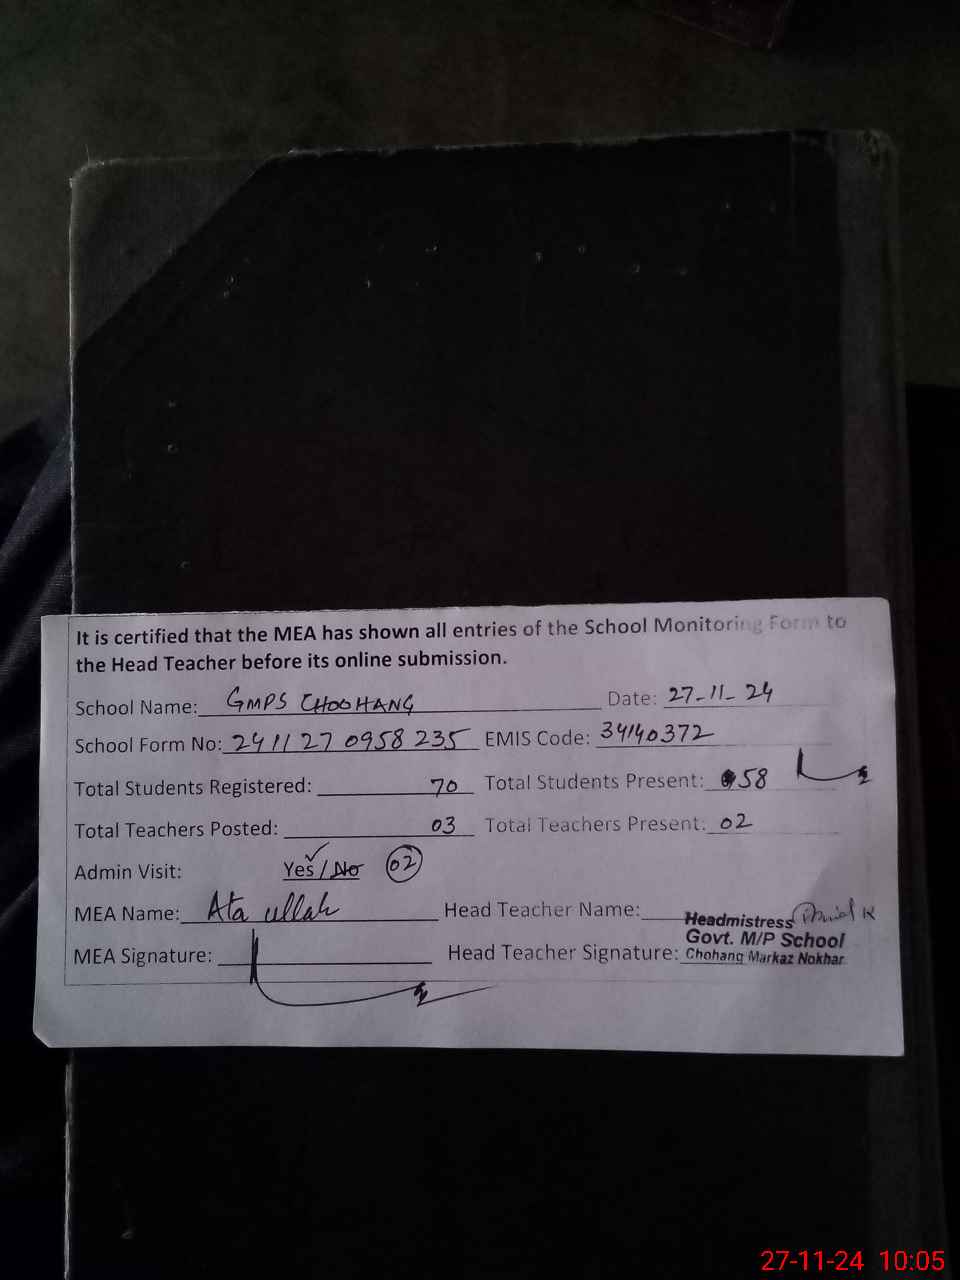 It is certified that the MEA has shown all entries of the School Monitoring Form to
the Head Teacher before its online submission.
School Name: GMPS CHOOHANG Date: 27-11-24
School Form No: 241127 0958 235 EMIS Code: 34140372
Total Students Registered: 70 Total Students Present: 58
Total Teachers Posted: 03 Total Teachers Present: 02
Admin Visit: Yes/No 02
MEA Name: Ata ullah Head Teacher Name:
Headmistress
Govt. M/P School
MEA Signature: Head Teacher Signature: Chohang Markaz Nokhar
27-11-24 10:05